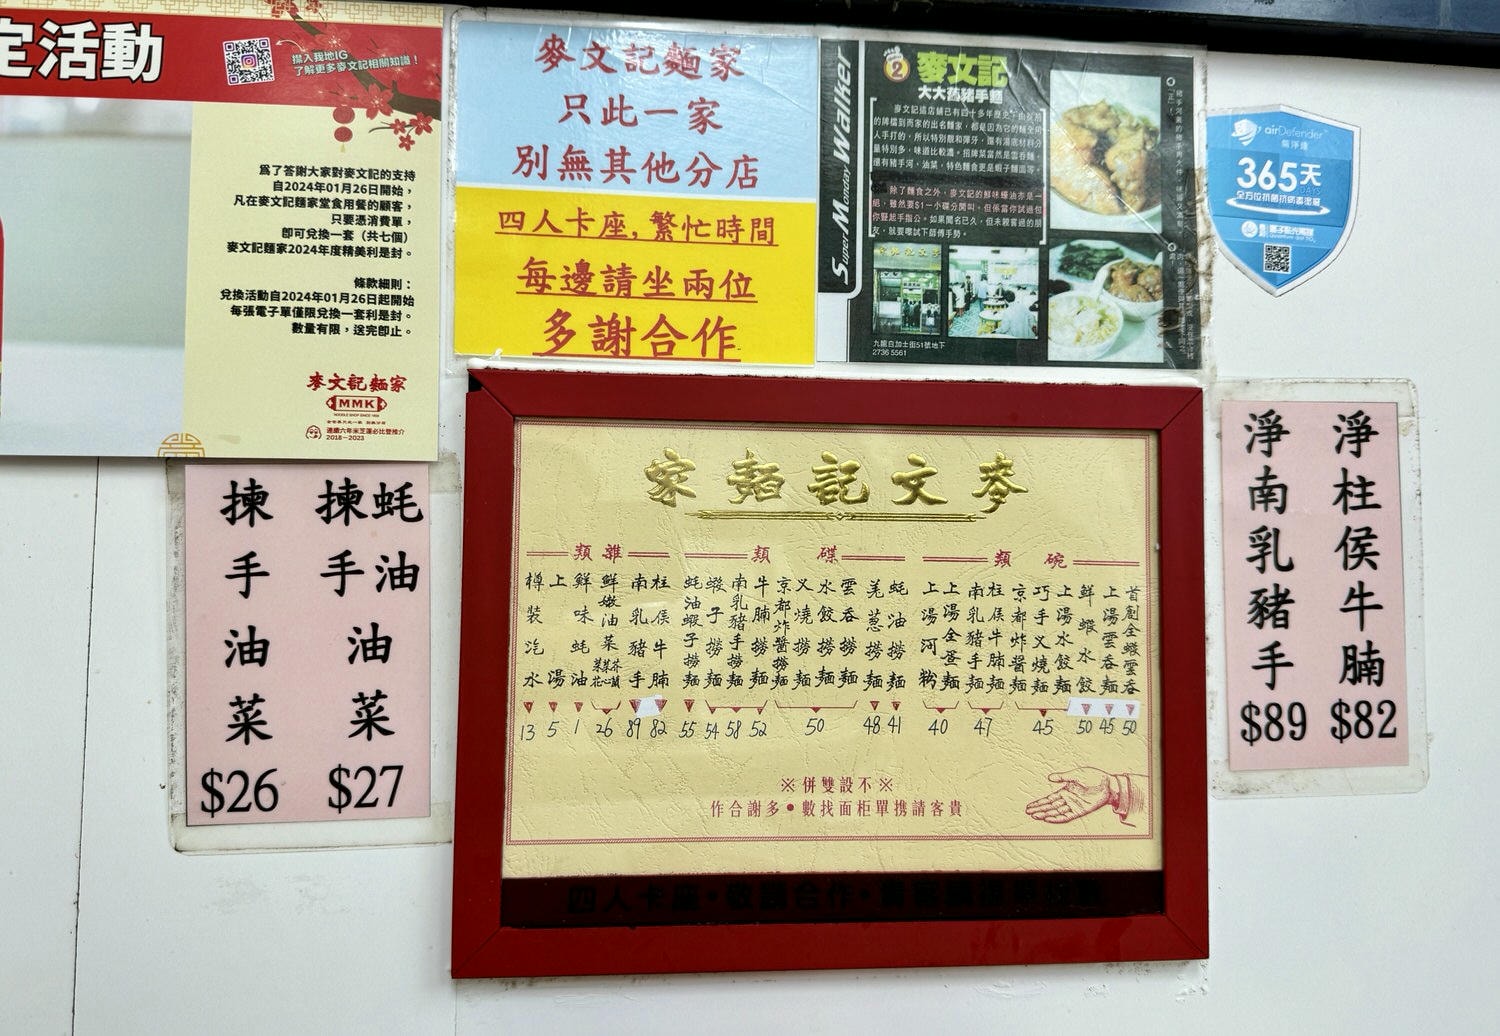 定活動
㩒入我地IG
了解更多麥文記相關知識！
為了答謝大家對麥文記的支持
自2024年01月26日開始，
凡在麥文記麵家堂食用餐的顧客，
只要憑消費單，
即可兌換一套（共七個）
麥文記麵家2024年度精美利是封。
條款細則：
兌換活動自2024年01月26日起開始
每張電子單僅限兌換一套利是封。
數量有限，送完即止。
麥文記麵家
MMK
NOODLE SHOP SINCE 1958
連續六年米芝蓮必比登推介
2018-2023
麥文記麵家
只此一家
別無其他分店
四人卡座,繁忙時間
每邊請坐兩位
多謝合作
Super Monday Walker
2
麥文記
大大舊豬手麵
除了麵食之外，麥文記的鮮味蠔油亦是一
絕，雖然要$1一小碟分開叫，但係當你試過包
你豎起手指公。如果聞名已久，但未親嘗過的朋
友，就要嚟試下師傅手勢。
九龍白加士街51號地下
2736 5561
airDefender
365天
DAYS
全方位抗菌抗病毒塗層
揀手油菜
$26
蚝油
揀手油菜
$27
麥文記麵家
碗類
首創全蝦雲吞 50
上湯雲吞麵 45
鮮蝦水餃 50
上湯水餃麵
巧手叉燒麵
京都炸醬麵
45
柱侯牛腩麵
南乳豬手麵
47
上湯全蛋麵
上湯河粉
40
碟類
蚝油撈麵 41
羗葱撈麵 48
雲吞撈麵
水餃撈麵
叉燒撈麵
京都炸醬撈麵
50
牛腩撈麵 52
南乳豬手撈麵 58
蝦子撈麵 54
蚝油蝦子撈麵 55
雜類
柱侯牛腩 82
南乳豬手 89
鮮嫩油菜
26
鮮味蚝油 1
上湯 5
樽裝汽水 13
※不設雙併※
貴客請携單柜面找數●多謝合作
四人卡座•敬請合作•
淨柱侯牛腩
$82
淨南乳豬手
$89